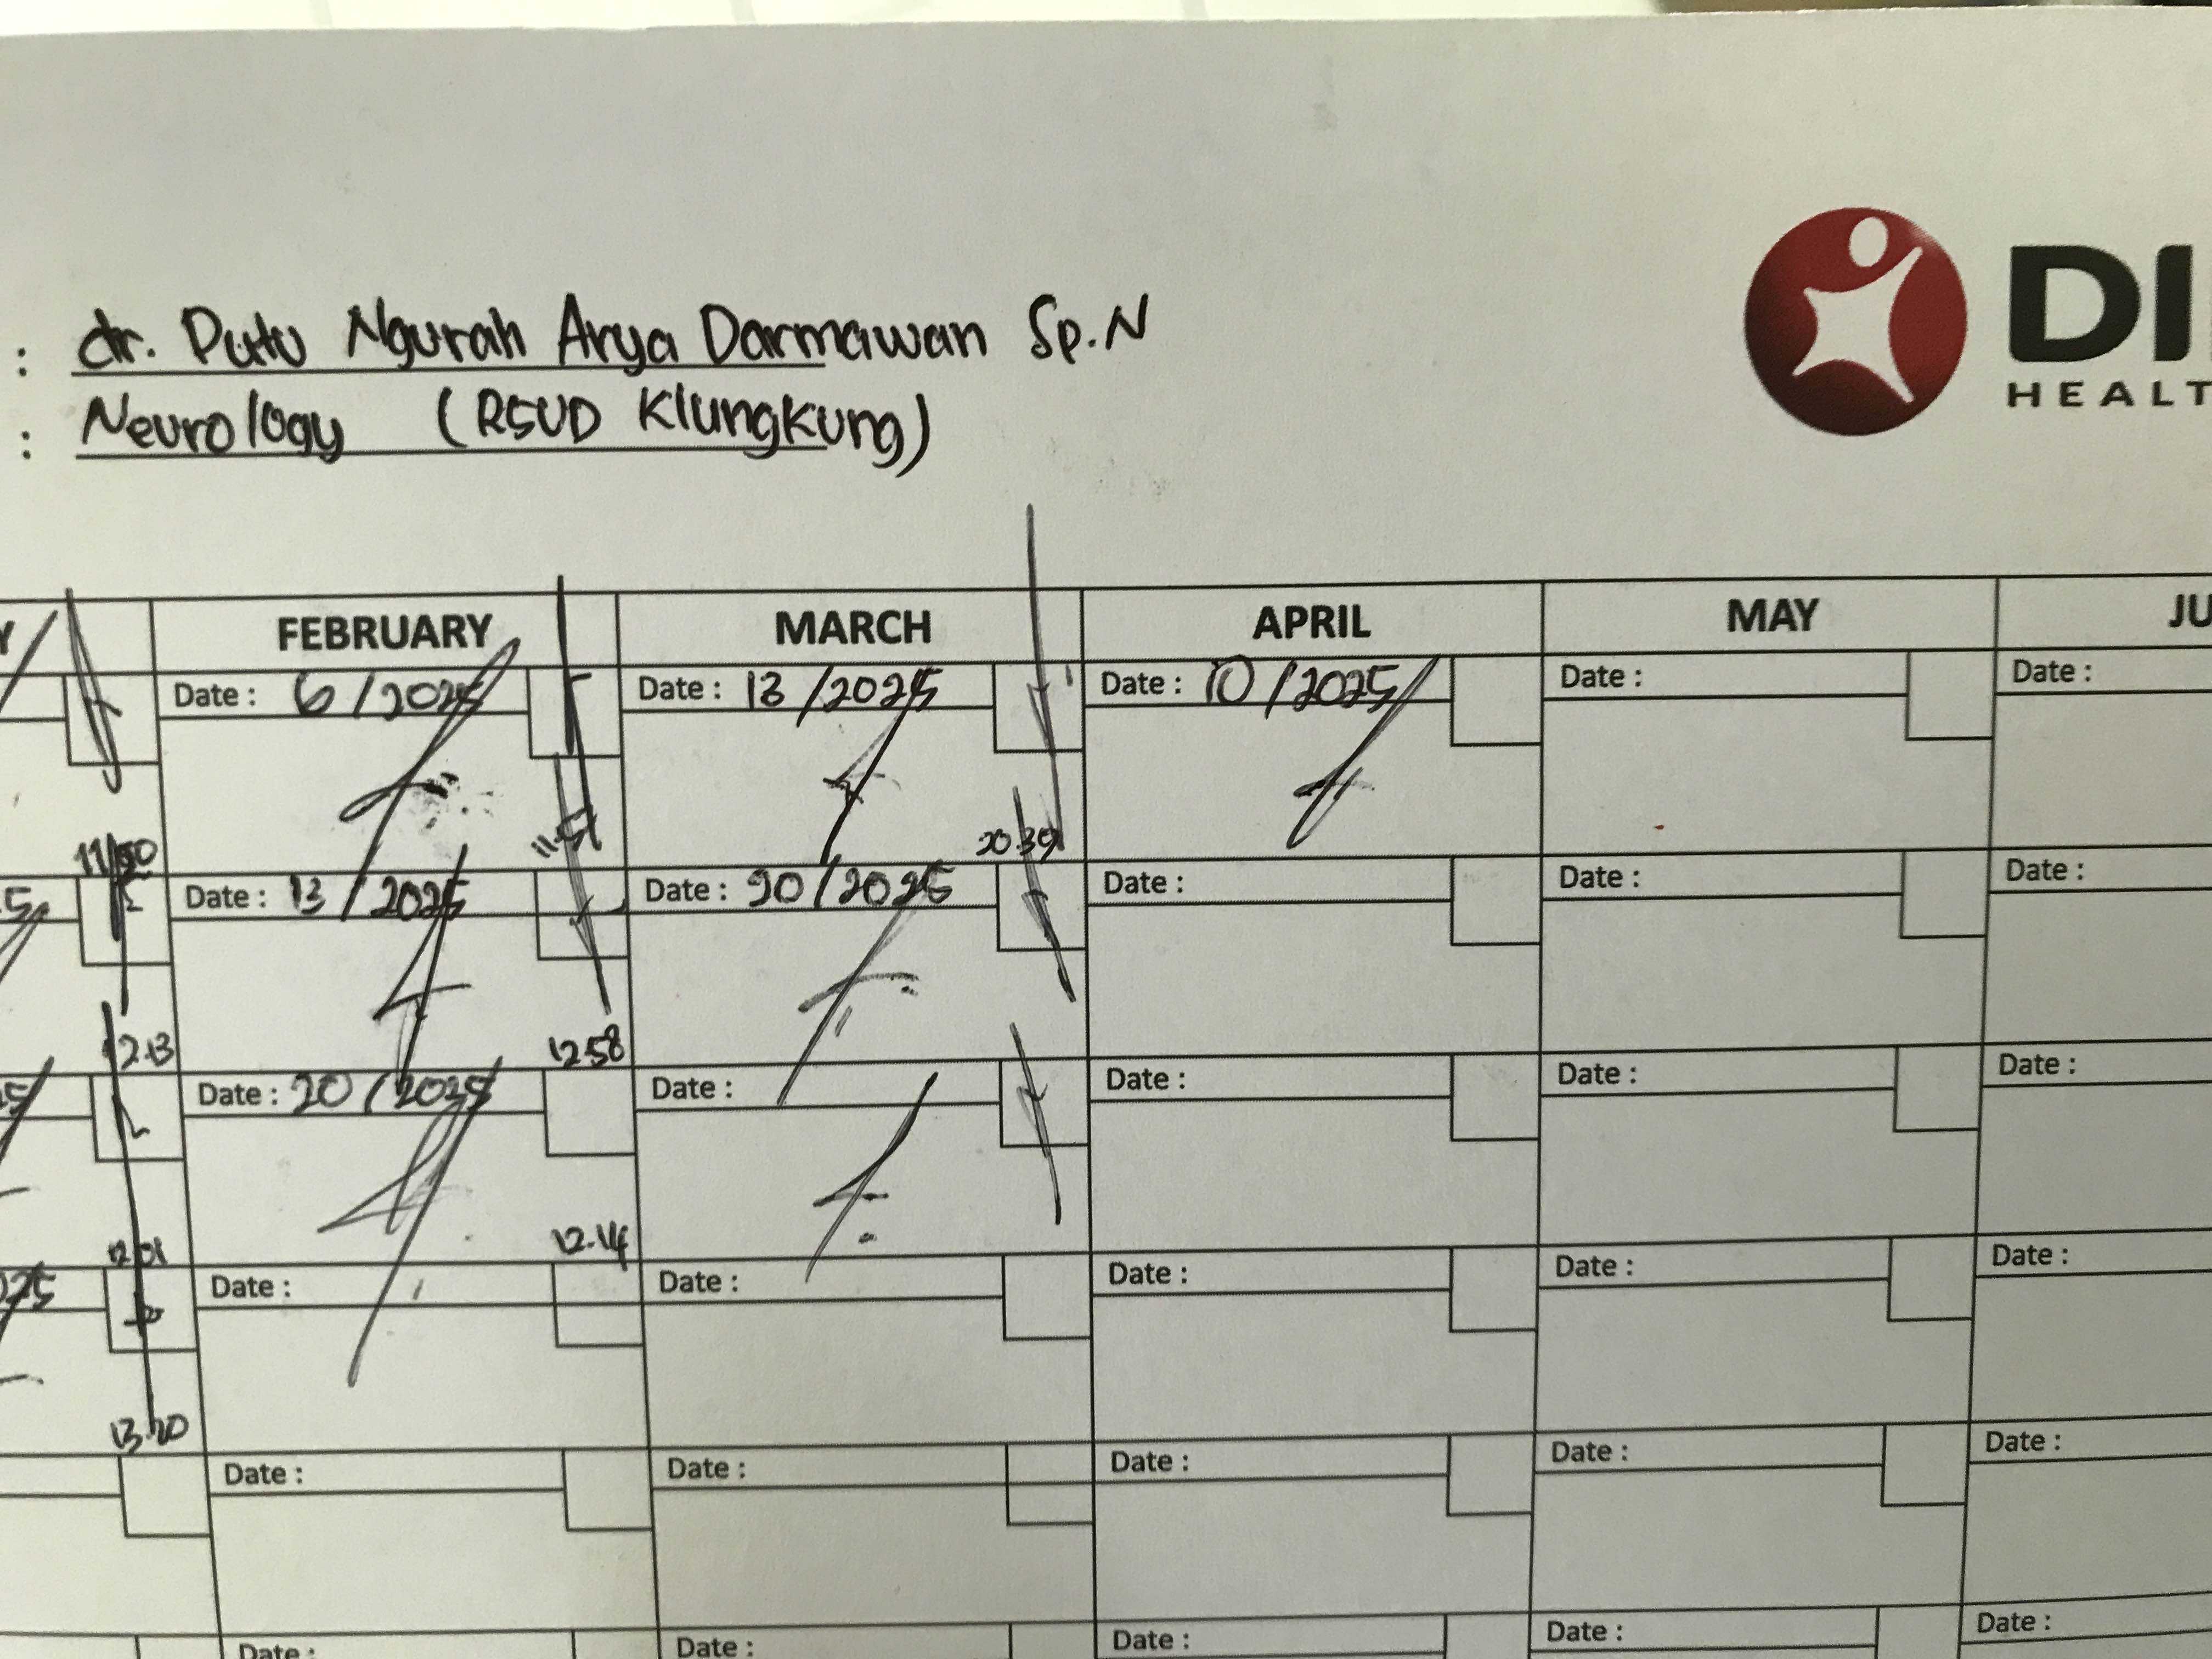 : dr. Putu Ngurah Arya Darmawan Sp.N
: Neurology (RSUD Klungkung)
DI
HEALT
Y FEBRUARY MARCH APRIL MAY JU
Date : 6/2025 Date : 13/2025 Date : 10/2025 Date : Date :
11/50 11.51 20.39
25 Date : 13/2025 Date : 20/2025 Date : Date : Date :
12.13 12.58
25 Date : 20/2025 Date : Date : Date : Date :
12.01 12.14
025 Date : Date : Date : Date : Date :
13.20
Date : Date : Date : Date : Date :
Date : Date : Date : Date : Date :